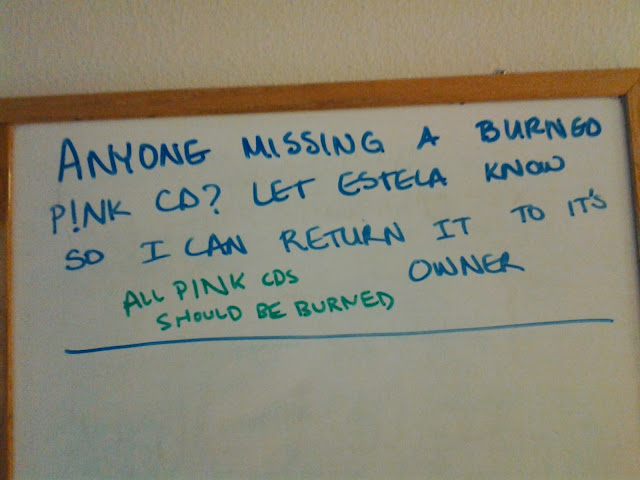 ANYONE MISSING A BURNED
P!NK CD? LET ESTELA KNOW
SO I CAN RETURN IT TO IT'S
OWNER
ALL PINK CDS
SHOULD BE BURNED